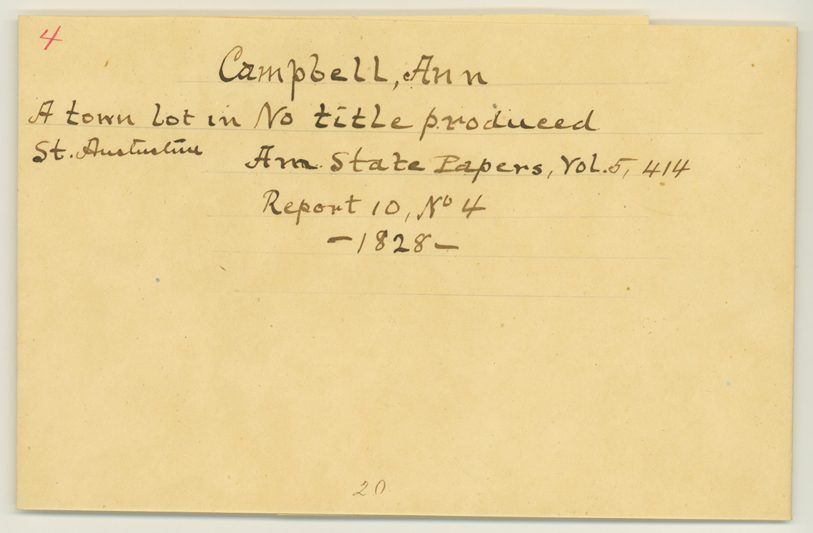 4
Campbell, Ann
A town lot in No title produced
St. Austustine Am. State Papers, Vol. 5, 414
Report 10, No 4
— 1828 —
20